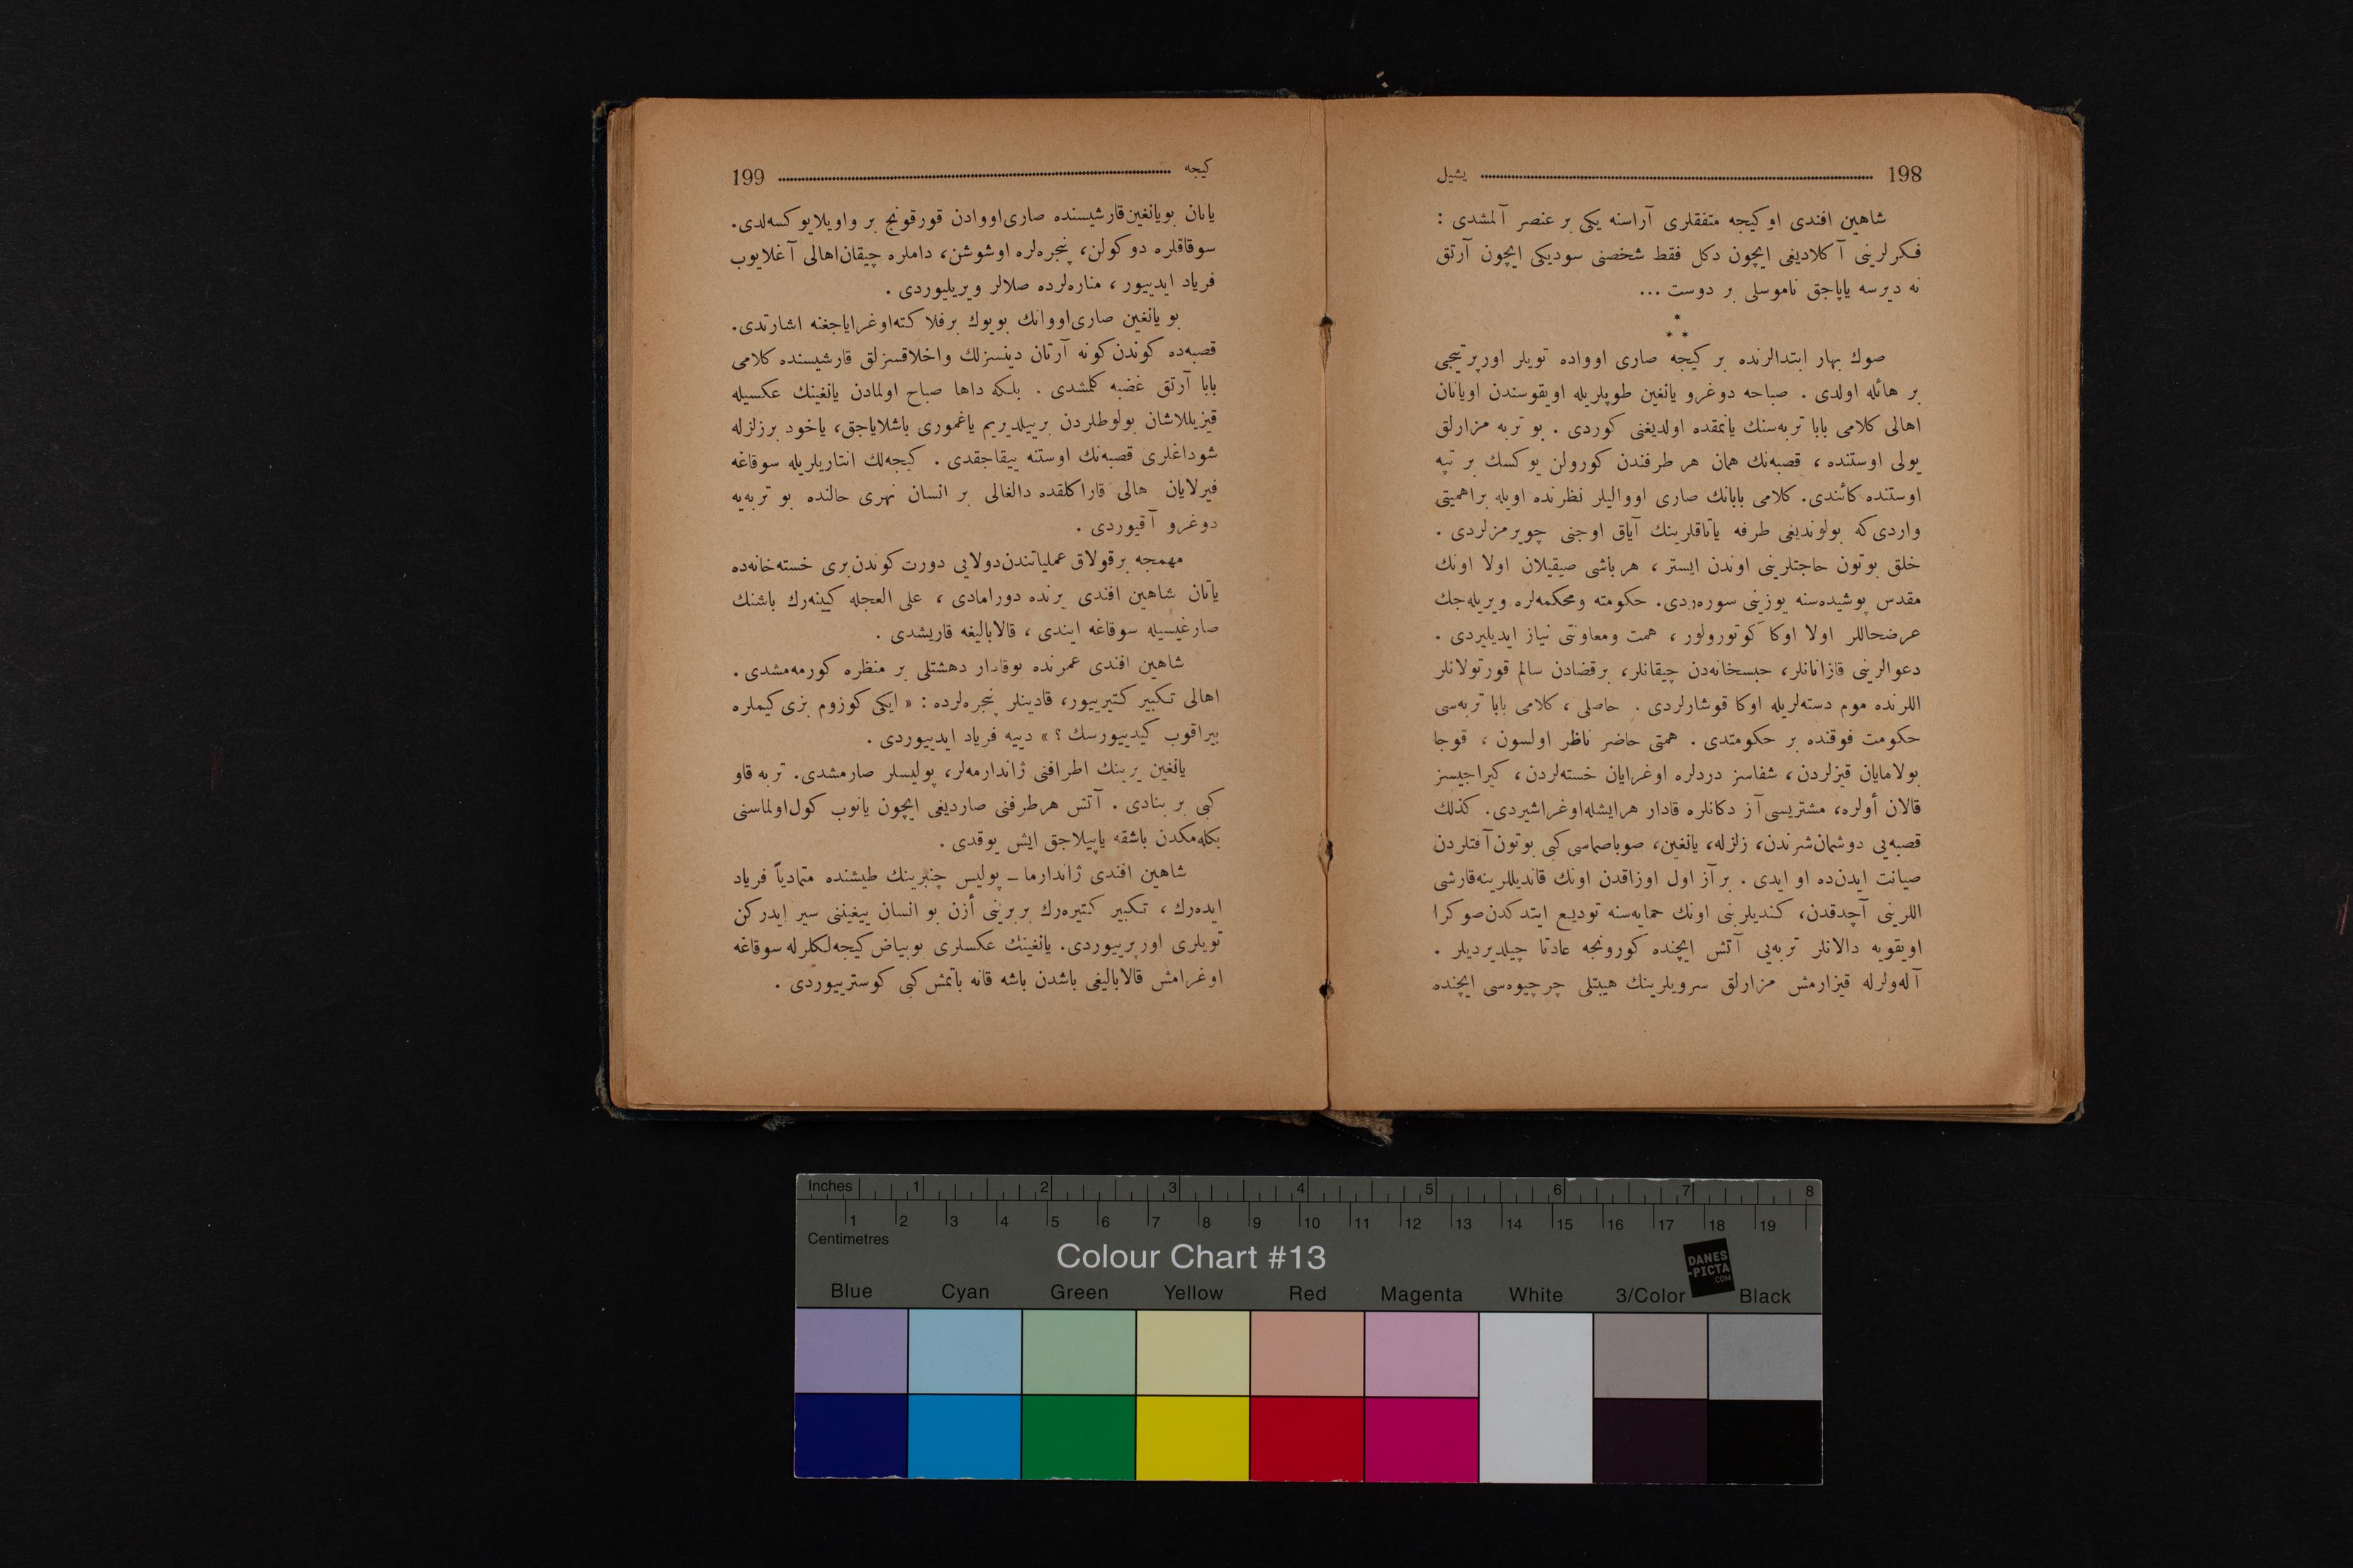 198 یشیل
شاهین افندی او کیجه متفقلری آراسنه یکی بر عنصر آلمشدی :
فکرلرینی آکلادیغی ایچون دکل فقط شخصنی سودیکی ایچون آرتق
نه دیرسه یاپاجق ناموسلی بر دوست ...
* * *
صوك بهار ابتدالرنده بر کیجه صاری اوواده تویلر اورپرتیجی
بر هائله اولدی . صباحه دوغرو یانغین طوپلریله اویقوسندن اویانان
اهالی کلامی بابا تربه‌سنك یانمقده اولدیغنی کوردی . بو تربه مزارلق
یولی اوستنده ، قصبه‌نك همان هر طرفندن کورولن یوکسك بر تپه
اوستنده کائندی. کلامی بابانك صاری اووالیلر نظرنده اویله براهمیتی
واردی‌که بولوندیغی طرفه یاتاقلرینك آیاق اوجنی چویرمزلردی .
خلق بوتون حاجتلرینی اوندن ایستر ، هرباشی صیقیلان اولا اونك
مقدس پوشیده‌سنه یوزینی سوره‌ردی. حکومته ومحکمه‌لره ویریله‌جك
عرضحاللر اولا اوکا کوتورولور ، همت ومعاونتی نیاز ایدیلیردی .
دعوالرینی قازانانلر، حبسخانه‌دن چیقانلر، برقضادن سالم قورتولانلر
اللرنده موم دسته‌لریله اوکا قوشارلردی . حاصلی ، کلامی بابا تربه‌سی
حکومت فوقنده بر حکومتدی . همتی حاضر ناظر اولسون ، قوجا
بولامایان قیزلردن ، شفاسز دردلره اوغرایان خسته‌لردن ، کیراجیسز
قالان أولره، مشتریسی آز دکانلره قادار هرایشله‌اوغراشیردی. کذلك
قصبه‌یی دوشمان‌شرندن، زلزله، یانغین، صوباصماسی کبی بوتون آفتلردن
صیانت ایدن‌ده او ایدی . برآز اول اوزاقدن اونك قاندیللرینه‌قارشی
اللرینی آچدقدن، کندیلرینی اونك حمایه‌سنه تودیع ایتدکدن‌صوکرا
اویقویه دالانلر تربه‌یی آتش ایچنده کورونجه عادتا چیلدیردیلر .
آله‌ولرله قیزارمش مزارلق سرویلرینك هیبتلی چرچیوه‌سی ایچنده
کیجه 199
یانان بویانغین‌قارشیسنده صاری‌اووادن قورقونج بر واویلایوکسه‌لدی.
سوقاقلره دوکولن، پنجره‌لره اوشوشن، داملره چیقان‌اهالی آغلایوب
فریاد ایدییور ، مناره‌لرده صلالر ویریلیوردی .
بو یانغین صاری‌اووانك بویوك برفلاکته‌اوغرایاجغنه اشارتدی.
قصبه‌ده کوندن‌کونه آرتان دینسزلك واخلاقسزلق قارشیسنده کلامی
بابا آرتق غضبه کلمشدی . بلکه داها صباح اولمادن یانغینك عکسیله
قیزیللاشان بولوطلردن بریبلدیریم یاغموری باشلایاجق، یاخود برزلزله
شوداغلری قصبه‌نك اوستنه ییقاجقدی . کیجه‌لك انتاریلریله سوقاغه
فیرلایان هالی قاراکلقده دالغالی بر انسان نهری حالنده بو تربه‌یه
دوغرو آقیوردی .
مهمجه برقولاق عملیاتندن‌دولایی دورت کوندن‌بری خسته‌خانه‌ده
یاتان شاهین افندی یرنده دورامادی ، علی العجله کیینه‌رك باشنك
صارغیسیله سوقاغه ایندی ، قالابالیغه قاریشدی .
شاهین افندی عمرنده بوقادار دهشتلی بر منظره کورمه‌مشدی .
اهالی تکبیر کتیرییور، قادینلر پنجره‌لرده : « ایکی کوزوم بزی کیملره
بیراقوب کیدییورسك ؟ » دییه فریاد ایدییوردی .
یانغین یرینك اطرافنی ژاندارمه‌لر، پولیسلر صارمشدی. تربه قاو
کبی بر بنادی . آتش هرطرفنی صاردیغی ایچون یانوب کول‌اولماسنی
بکله‌مکدن باشقه یاپیلاجق ایش یوقدی .
شاهین افندی ژاندارما ـ پولیس چنبرینك طیشنده متمادیاً فریاد
ایده‌رك ، تکبیر کتیره‌رك بربرینی أزن بو انسان ییغیننی سیر ایدرکن
تویلری اورپرییوردی. یانغینك عکسلری بوبیاض کیجه‌لکلرله سوقاغه
اوغرامش قالابالیغی باشدن باشه قانه باتمش کبی کوسترییوردی .
Inches 1 2 3 4 5 6 7 8
1 2 3 4 5 6 7 8 9 10 11 12 13 14 15 16 17 18 19
Centimetres
Colour Chart #13
DANES
-PICTA
.COM
Blue Cyan Green Yellow Red Magenta White 3/Color Black